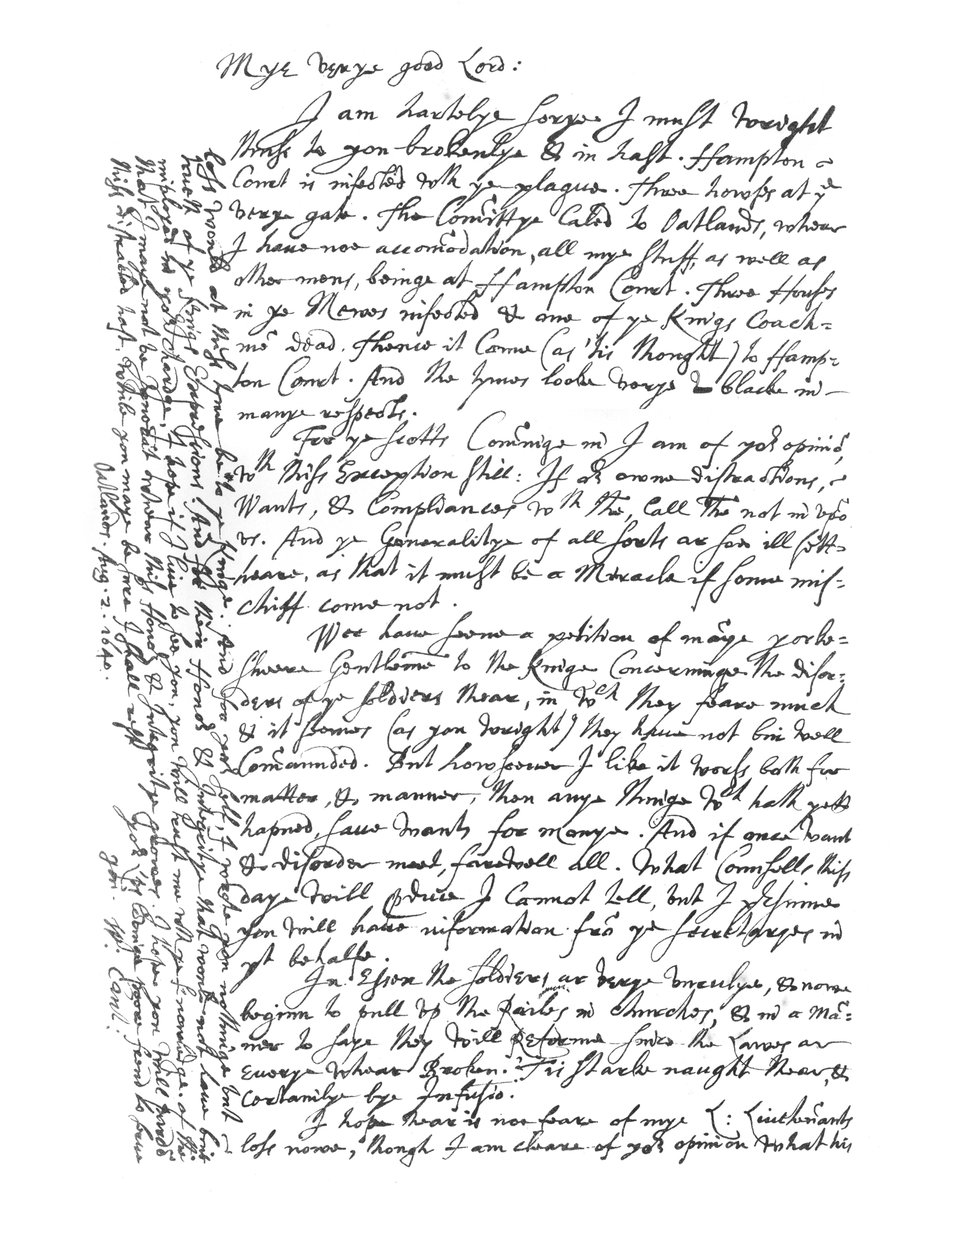 Mye verye good Lord:
I am hartelye sorye I must wright
thuss to you brokenlye & in hast. Hampton
Court is infected wth ye plague. Three howses at ye
verye gate. The Comittye caled to Oatlands, whear
I have noe accomodation, all mye stuff, as well as
other mens, beinge at Hampton Court. Three Houses
in ye Mewes infected & one of ye Kings Coach=
me dead. Thence it came (as 'tis thought) to Hamp=
ton Court. And the tymes looke verye blacke in
manye respects.
For ye Scotts Cominge in I am of yor opinio,
wth thiss Exception still: If or owne distractions,
Wants, & Compliances wth the, Call the not in upo
us. And ye Generalitye of all sorts ar soe ill sett
heare, as that it must be a Miracle if some mis=
chiff come not.
Wee have seene a petition of manye yorke=
sheere Gentleme to the Kinge Concerninge the disor=
ders of ye soldiers thear, in wch they feare much
& it seemes (as you wright) they have not bin well
Comannded. But howsoever I like it worss both for
matter, & manner, then anye thinge wch hath yett
hapned, save wants for monye. And if once want
& disorder meet, farewell all. What Counsells thiss
daye will pduce I cannot tell, but I psume
you will have information fro ye secretaryes in
yt behalfe.
In Essex the soldiers ar verye unrulye, & nowe
beginn to pull up the Railes in churches, & in a ma=
ner to saye they will Reforme since the Lawes ar
everye whear Broken. Tis starke naught thear, &
certainlye bye Infusio.
I hope thear is noe feare of mye L: Lieuthenants
loss nowe, though I am cleare of yor opinion what his
loss would at thiss tyme be to ye Kinge. And for yor self, I wrote you nothinge but
truth of ye Kings Expressions. And for then Honor & Integritye that would not have bin
imployed in yor chardge, I hope if I live to see you, you will trust me wth ye knowledge of the
that I may not be ignorant whear thiss Honor & Integritye growes. I hope you will pardo
thiss distracted hast, while you maye be sure I shall rest
Yor Lps Loveinge poore freind to serve
you. W: Cant:
Oatlands. Aug. 2. 1640.